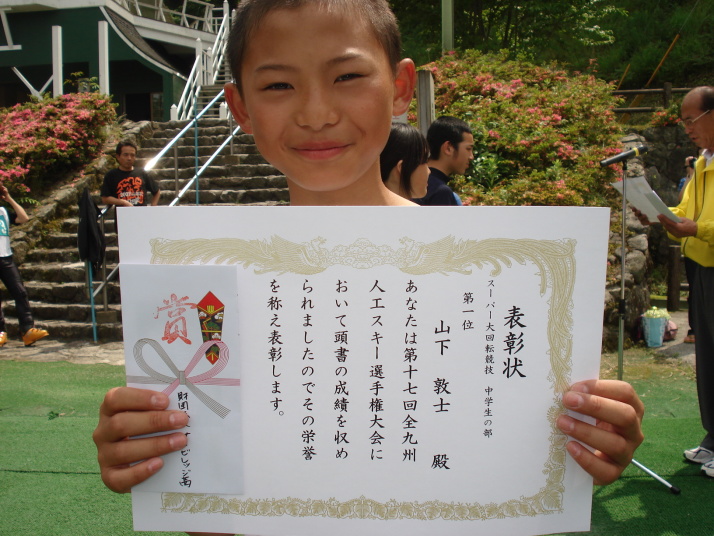 表彰状
スーパー大回転競技 中学生の部
第一位
山下 敦士 殿
あなたは第十七回全九州
人工スキー選手権大会に
おいて頭書の成績を収め
られましたのでその栄誉
を称え表彰します。
賞
財団